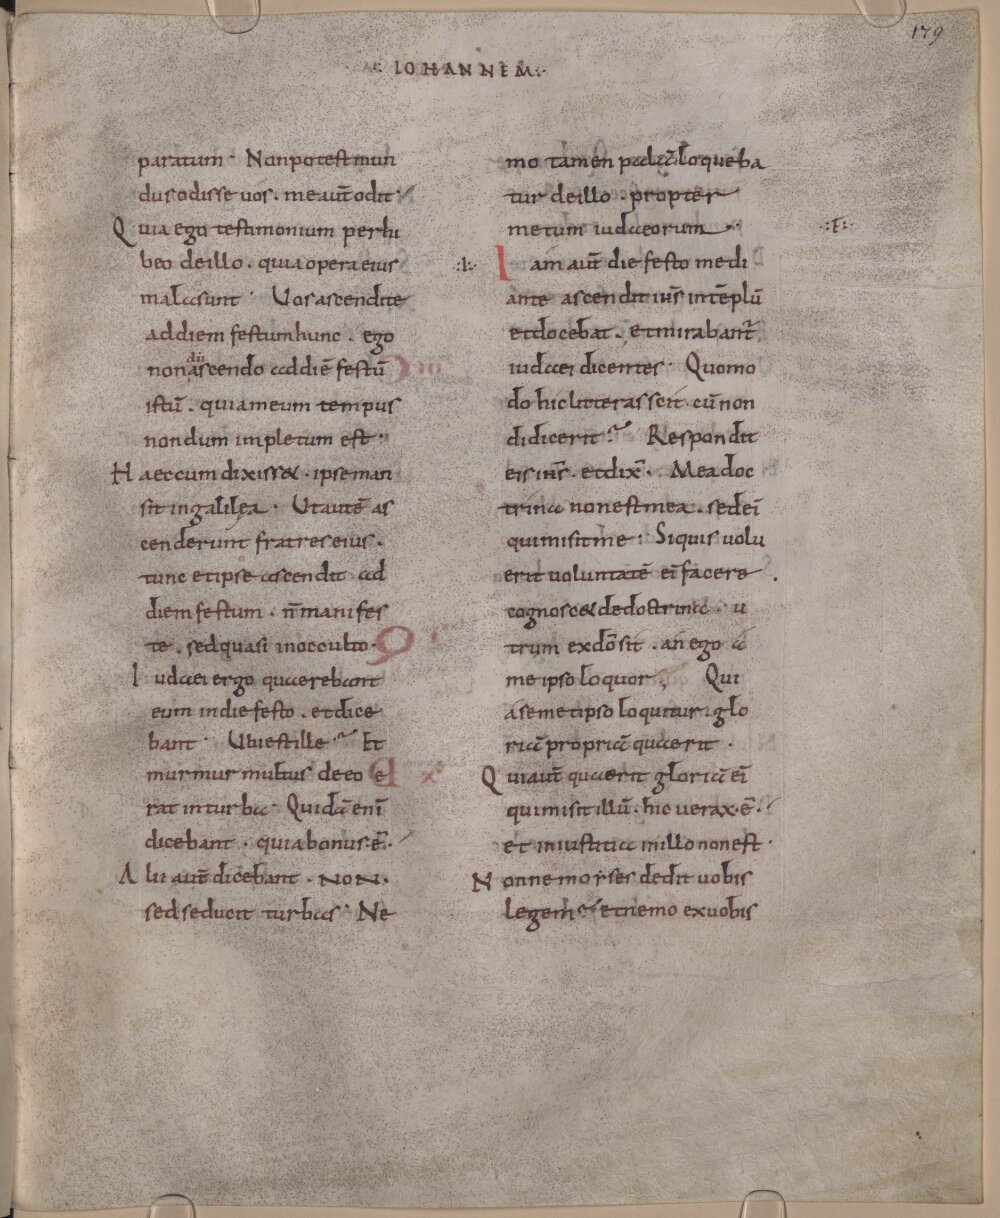 179
·: IOHANNEM:·
paratum· Nonpotest mun
dus odisse uos· me aut̄ odit·
Quia ego testimonium perhi
beo de illo· quia opera eius
mala sunt· Uos ascendite
ad diem festum hunc· ego
non ascendo ad diē festū
istū· quia meum tempus
nondum impletum est·
Haec cum dixiss&· ipse man
sit in galilęa· Ut autē as
cenderunt fratres eius·
tunc et ipse ascendit ad
diem festum· n̄ manifes
te· sed quasi in occulto·
Iudaei ergo quaerebant
eum in die festo· et dice
bant· Ubi est ille? Et
murmur multus de eo e
rat in turba· Quidā enī
dicebant· quia bonus·ē·
Alii aut̄ dicebant· NON·
sed seducit turbas· Ne
mo tamen palā loqueba
tur de illo· propter
metum iudaeorum·
·:F:·
·:I:· Iam aut̄ die festo medi
ante ascendit ih̄s in tēplū
et docebat· et mirabant̄
iudaei dicentes· Quomo
do hic litteras scit· cū non
didicerit? Respondit
eis ih̄s· et dix̄· Mea doc
trina non est mea· sed eī
qui misit me· Siquis uolu
erit uoluntatē eī facere·
cognosc& de doctrina· u
trum ex dō sit· an ego a
me ipso loquor· Qui
a semetipso loquitur· glo
riā propriā quaerit·
Qui aut̄ quaerit gloriā eī
qui misit illū· hic uerax·ē·
et iniustitia in illo non est·
Nonne moyses dedit uobis
legem? et nemo ex uobis